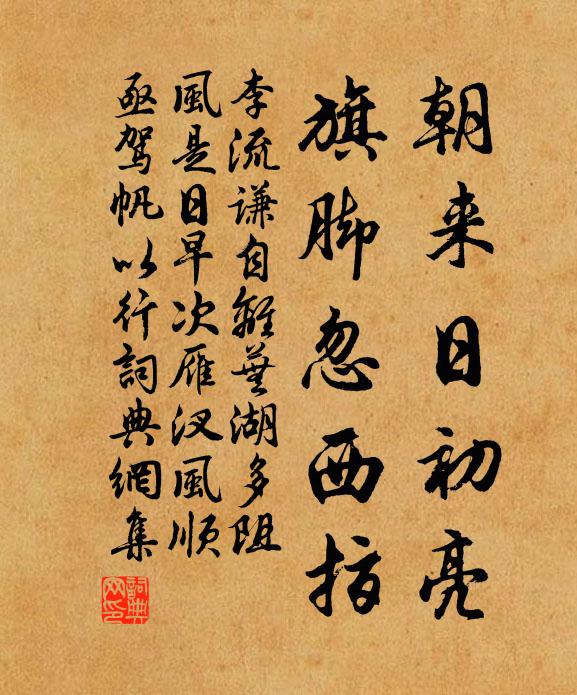 朝来日初亮
旗脚忽西指
李流謙自離蕪湖多阻
風是日早次雁汊風順
亟驾帆以行詞典網集
詞典网印